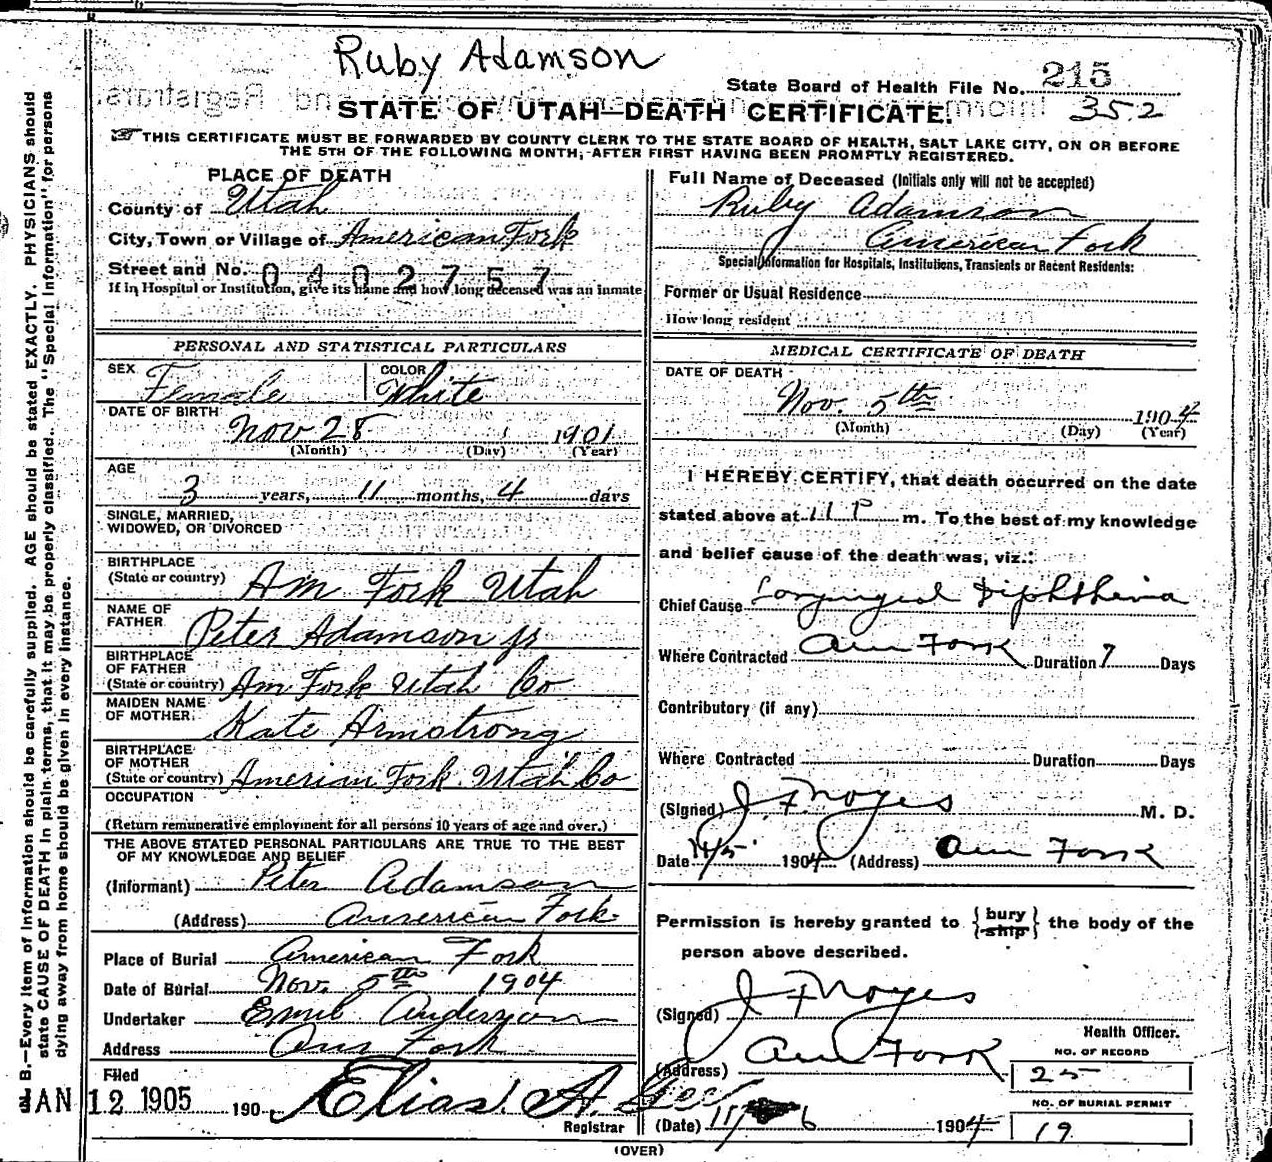 Ruby Adamson
State Board of Health File No. 215
352
STATE OF UTAH—DEATH CERTIFICATE.
THIS CERTIFICATE MUST BE FORWARDED BY COUNTY CLERK TO THE STATE BOARD OF HEALTH, SALT LAKE CITY, ON OR BEFORE
THE 5TH OF THE FOLLOWING MONTH, AFTER FIRST HAVING BEEN PROMPTLY REGISTERED.
PLACE OF DEATH
County of Utah
City, Town or Village of American Fork
Street and No. 0402757
If in Hospital or Institution, give its name and how long deceased was an inmate
PERSONAL AND STATISTICAL PARTICULARS
SEX Female COLOR White
DATE OF BIRTH Nov 28 1901
(Month) (Day) (Year)
AGE
3 years, 11 months, 4 days
SINGLE, MARRIED,
WIDOWED, OR DIVORCED
BIRTHPLACE
(State or country) Am Fork Utah
NAME OF
FATHER Peter Adamson Jr
BIRTHPLACE
OF FATHER
(State or country) Am Fork Utah Co
MAIDEN NAME
OF MOTHER Kate Armstrong
BIRTHPLACE
OF MOTHER
(State or country) Amerian Fork Utah Co
OCCUPATION
(Return remunerative employment for all persons 10 years of age and over.)
THE ABOVE STATED PERSONAL PARTICULARS ARE TRUE TO THE BEST
OF MY KNOWLEDGE AND BELIEF
(Informant) Peter Adamson
(Address) American Fork
Place of Burial American Fork
Date of Burial Nov. 5th 1904
Undertaker Emil Anderson
Address Am Fork
Filed
JAN 12 1905 190
Elias A. Gee
Registrar
Full Name of Deceased (Initials only will not be accepted)
Ruby Adamson
American Fork
Special Information for Hospitals, Institutions, Transients or Recent Residents:
Former or Usual Residence
How long resident
MEDICAL CERTIFICATE OF DEATH
DATE OF DEATH
Nov. 5th 1904
(Month) (Day) (Year)
I HEREBY CERTIFY, that death occurred on the date
stated above at 11 P m. To the best of my knowledge
and belief cause of the death was, viz.:
Chief Cause Laryngeal Diphtheria
Where Contracted Am Fork Duration 7 Days
Contributory (if any)
Where Contracted Duration Days
(Signed) J. F. Noyes M. D.
Date 11/5 1904 (Address) Am Fork
Permission is hereby granted to {bury ship} the body of the
person above described.
(Signed) J F Noyes
Health Officer.
(Address) Am Fork
NO. OF RECORD
25
NO. OF BURIAL PERMIT
19
(Date) 11/ 6 1904
(OVER)
B.—Every item of information should be carefully supplied. AGE should be stated EXACTLY. PHYSICIANS should
state CAUSE OF DEATH in plain terms, that it may be properly classified. The "Special Information" for persons
dying away from home should be given in every instance.